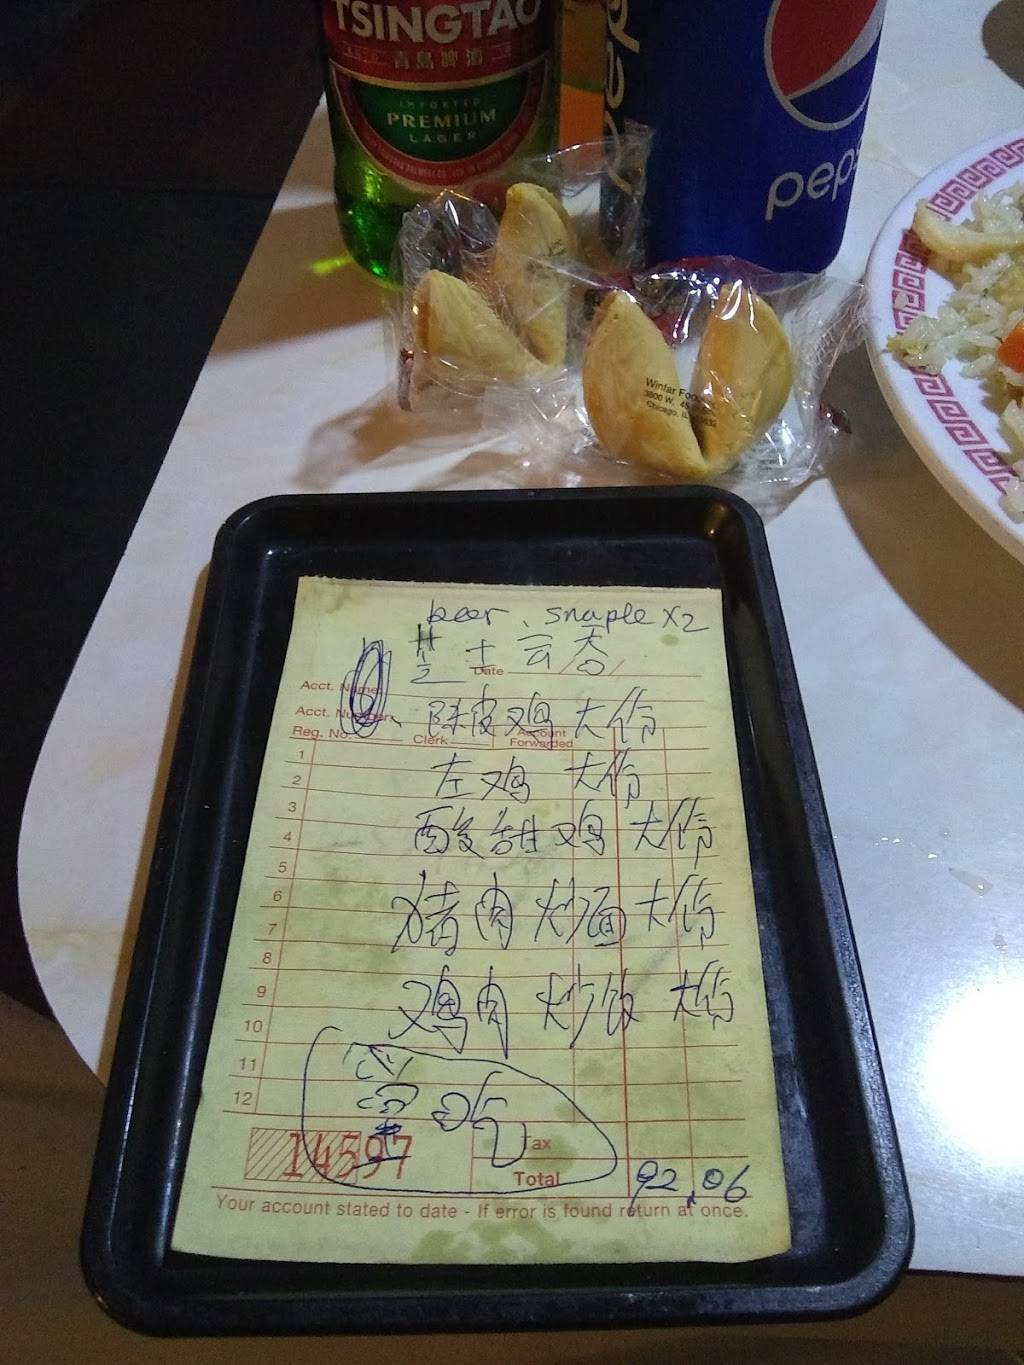 TSINGTAO
青島啤酒
IMPORTED
PREMIUM
LAGER
pepsi
Winfar Foods
3800 W.
Chicago, IL
beer、snaple x2
Date
Acct. Name
Acct. Number
陈皮鸡 大份
Reg. No.
Clerk
Account
Forwarded
1
左鸡 大份
2
3
酸甜鸡 大份
4
5
6
猪肉炒面大份
7
8
9
鸡肉炒饭 大份
10
11
12
堂吃
14597
Tax
Total
92.06
Your account stated to date - If error is found return at once.